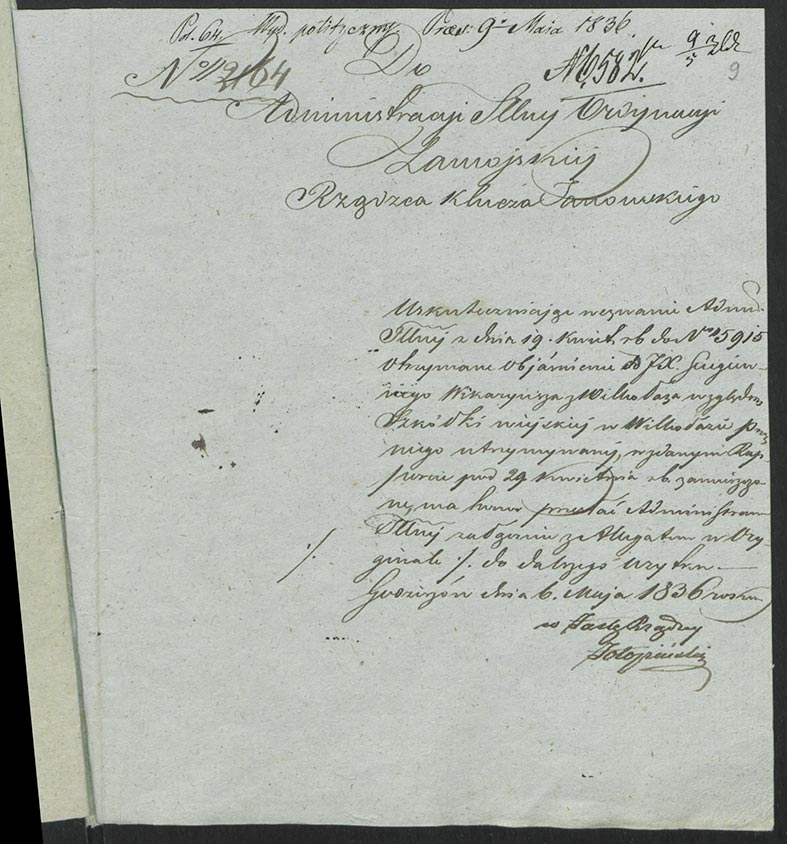 Pol. 64. Wyd. polityczny. Praes: 9. Maja 1836.
9
Do
No 2164
No 6582.
Administracyi JWnej Ordynacyi
Zamojskiej
Rządzca Klucza Janowskiego
Uskuteczniając wezwanie Admi.
JWnej z dnia 19. Kwiet. rb do No 5915
otrzymane objaśnienie od JX.
Wikaryusza z Wilkołaza względem
Szkółki wiejskiej w Wilkołazie przez
niego utrzymywanej, w zdanym Rap-
porcie pod 29 Kwietnia rb. zamieszczo-
ne, ma honor przesłać Administracyi
JWnej załączenie z Allegatem w Ory-
ginale ·/. do dalszego użytku.—
·/.
Godziszów dnia 6. Maja 1836 roku
w Zastę Rządzcy